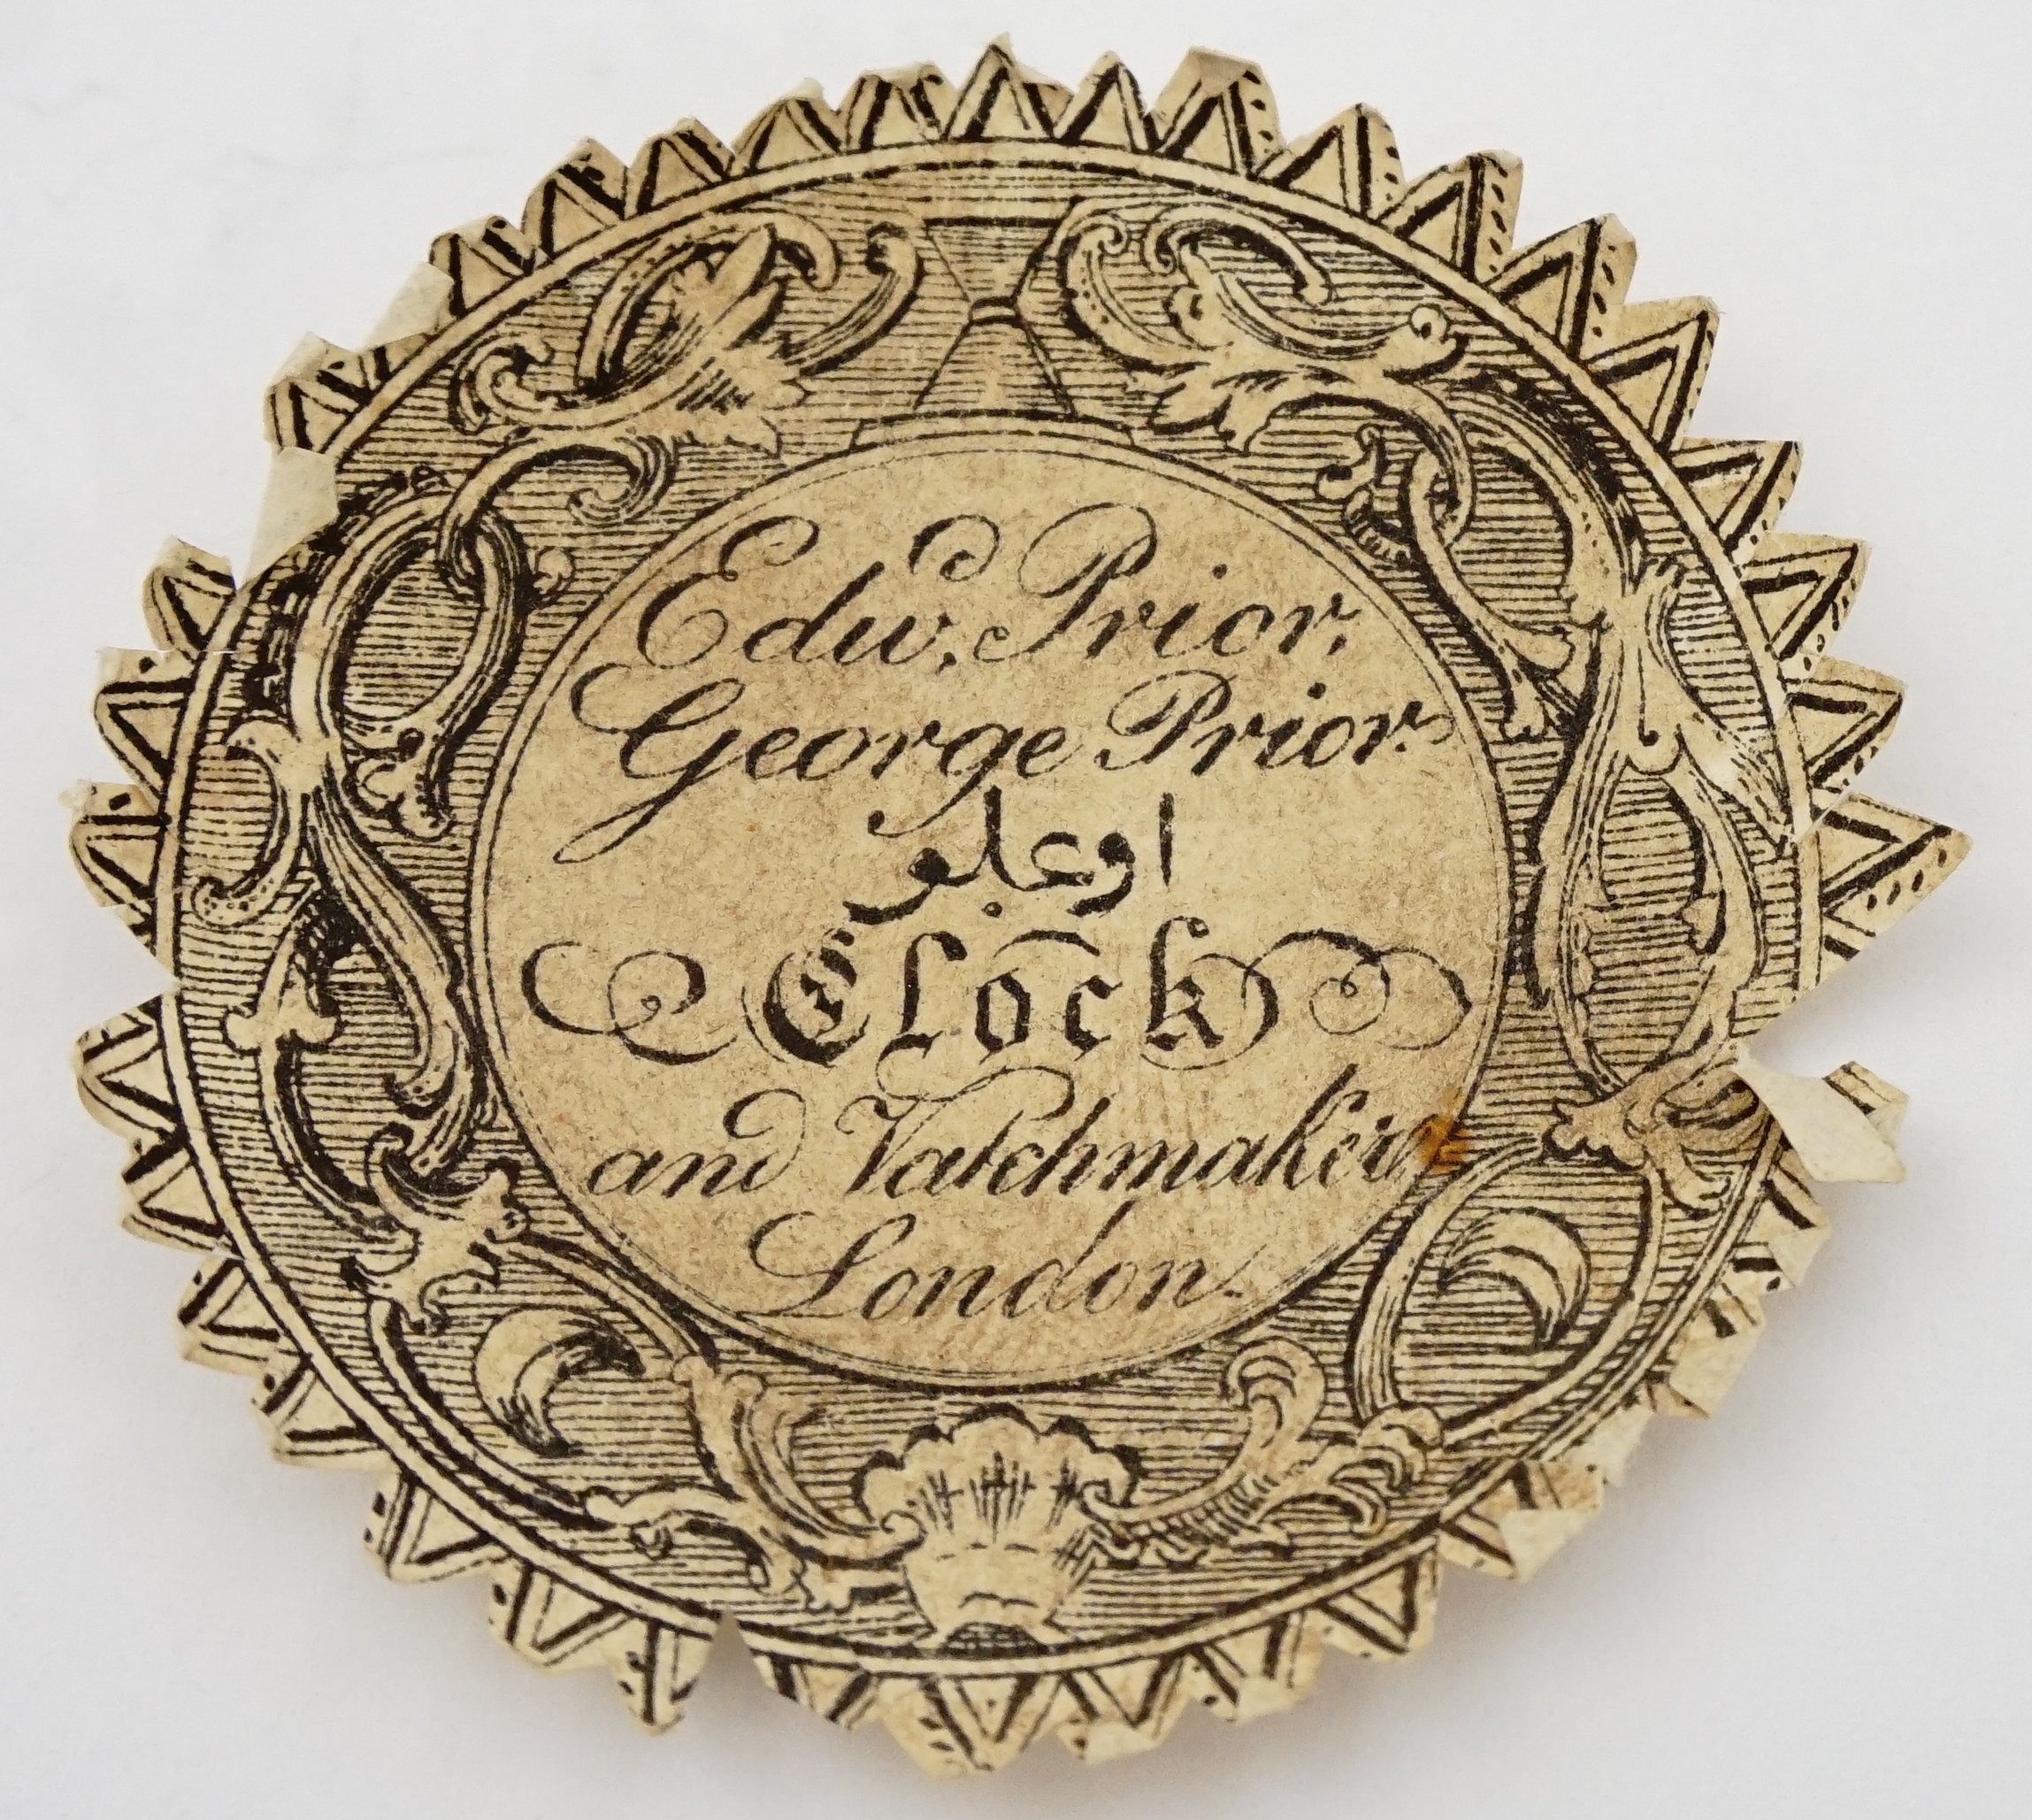 Edwd. Prior,
George Prior.
اوعلو
Clock
and Vatchmakers
London.